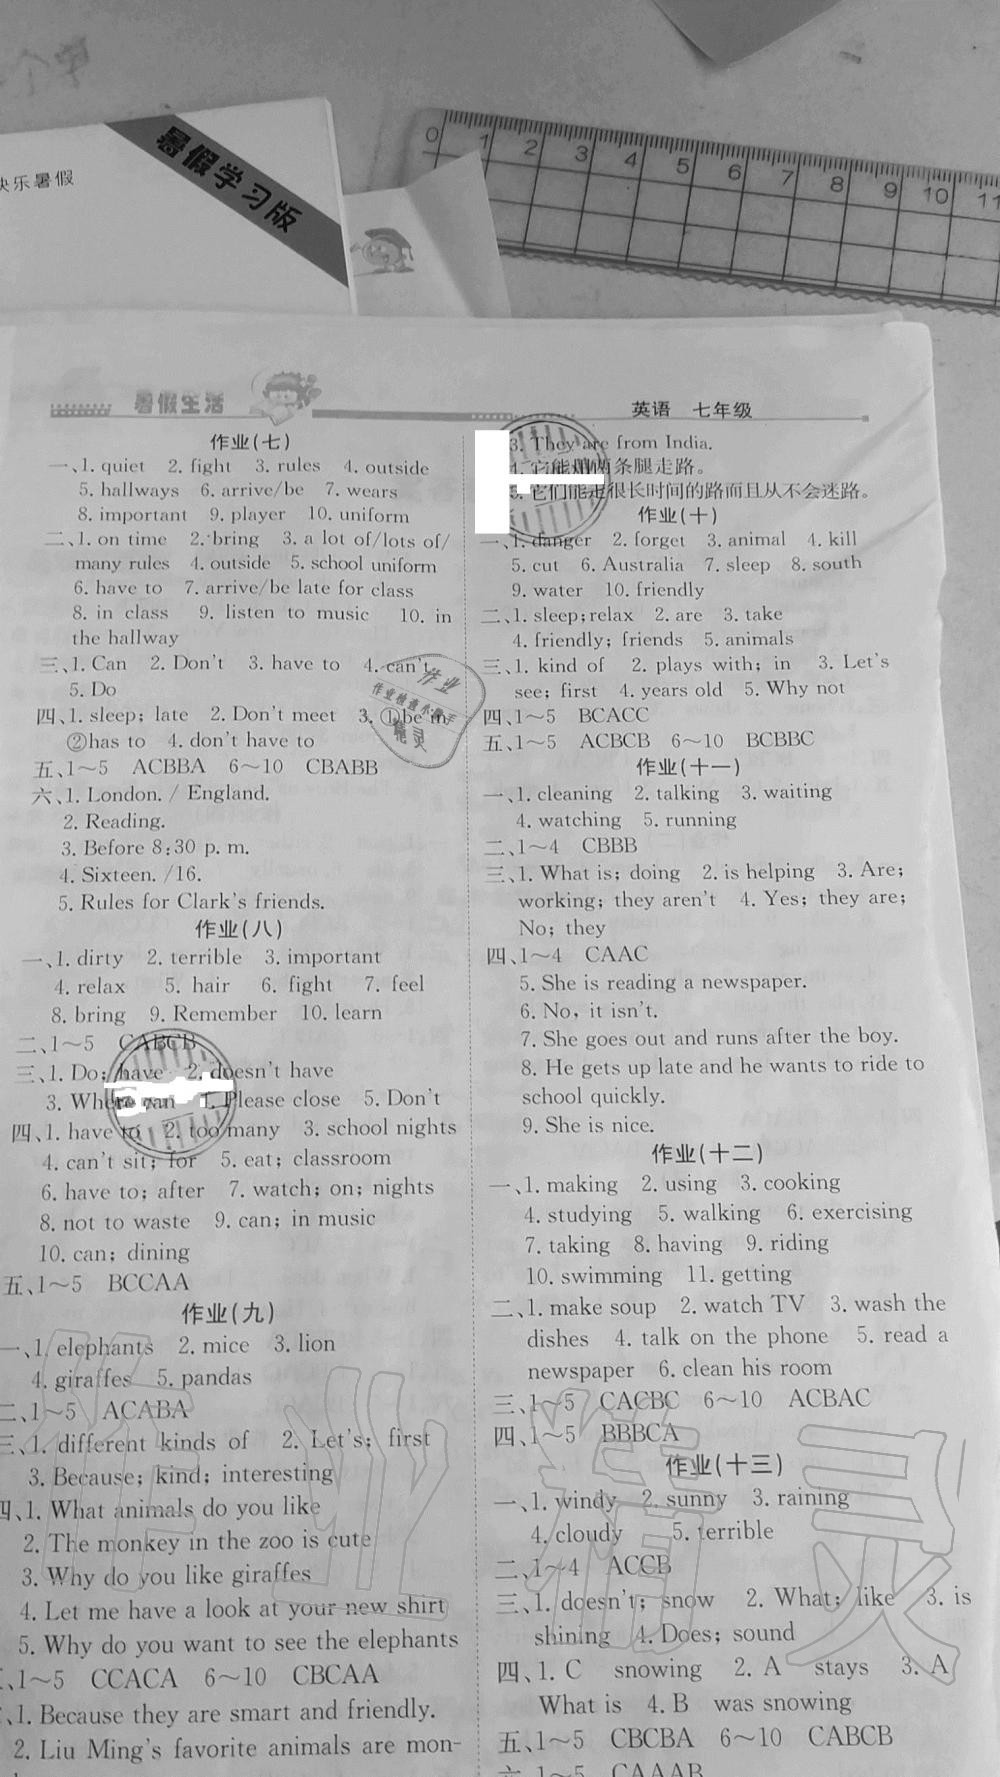 快乐暑假
暑假学习版
0 1 2 3 4 5 6 7 8 9 10 11
暑假生活
英语 七年级
作业(七)
一、1. quiet 2. fight 3. rules 4. outside
5. hallways 6. arrive/be 7. wears
8. important 9. player 10. uniform
二、1. on time 2. bring 3. a lot of/lots of/
many rules 4. outside 5. school uniform
6. have to 7. arrive/be late for class
8. in class 9. listen to music 10. in
the hallway
三、1. Can 2. Don't 3. have to 4. can't
5. Do
四、1. sleep; late 2. Don't meet 3. ①be in
②has to 4. don't have to
五、1~5 ACBBA 6~10 CBABB
六、1. London. / England.
2. Reading.
3. Before 8:30 p. m.
4. Sixteen. /16.
5. Rules for Clark's friends.
作业(八)
一、1. dirty 2. terrible 3. important
4. relax 5. hair 6. fight 7. feel
8. bring 9. Remember 10. learn
二、1~5 CABCB
三、1. Do; have 2. doesn't have
3. Where can Please close 5. Don't
四、1. have to 2. too many 3. school nights
4. can't sit; for 5. eat; classroom
6. have to; after 7. watch; on; nights
8. not to waste 9. can; in music
10. can; dining
五、1~5 BCCAA
作业(九)
一、1. elephants 2. mice 3. lion
4. giraffes 5. pandas
二、1~5 ACABA
三、1. different kinds of 2. Let's; first
3. Because; kind; interesting
四、1. What animals do you like
2. The monkey in the zoo is cute
3. Why do you like giraffes
4. Let me have a look at your new shirt
5. Why do you want to see the elephants
1~5 CCACA 6~10 CBCAA
1. Because they are smart and friendly.
2. Liu Ming's favorite animals are mon-
3. They are from India.
4. 它能用两条腿走路。
5. 它们能走很长时间的路而且从不会迷路。
作业(十)
一、1. danger 2. forget 3. animal 4. kill
5. cut 6. Australia 7. sleep 8. south
9. water 10. friendly
二、1. sleep;relax 2. are 3. take
4. friendly; friends 5. animals
三、1. kind of 2. plays with; in 3. Let's
see; first 4. years old 5. Why not
四、1~5 BCACC
五、1~5 ACBCB 6~10 BCBBC
作业(十一)
一、1. cleaning 2. talking 3. waiting
4. watching 5. running
二、1~4 CBBB
三、1. What is; doing 2. is helping 3. Are;
working; they aren't 4. Yes; they are;
No; they
四、1~4 CAAC
5. She is reading a newspaper.
6. No, it isn't.
7. She goes out and runs after the boy.
8. He gets up late and he wants to ride to
school quickly.
9. She is nice.
作业(十二)
一、1. making 2. using 3. cooking
4. studying 5. walking 6. exercising
7. taking 8. having 9. riding
10. swimming 11. getting
二、1. make soup 2. watch TV 3. wash the
dishes 4. talk on the phone 5. read a
newspaper 6. clean his room
三、1~5 CACBC 6~10 ACBAC
四、1~5 BBBCA
作业(十三)
一、1. windy 2. sunny 3. raining
4. cloudy 5. terrible
二、1~4 ACCB
三、1. doesn't; snow 2. What; like 3. is
shining 4. Does; sound
四、1. C snowing 2. A stays 3. A
What is 4. B was snowing
五、1~5 CBCBA 6~10 CABCB
六、1~5 CAAAB